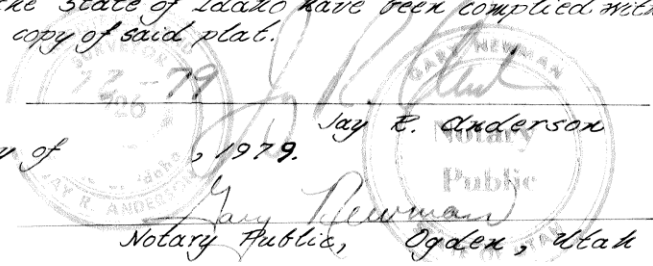 the State of Idaho have been complied with
copy of said plat.
Jay R. Anderson
y of , 1979.
Gary Newman
Notary Public, Ogden, Utah
SURVEYOR
JAY R. ANDERSON
GARY NEWMAN
Notary
Public